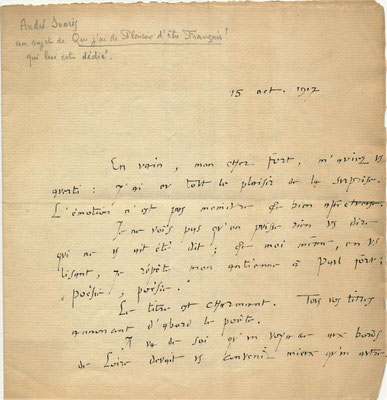 André Suarès
au sujet de Que j'ai de Plaisir d'être Français!
qui lui est dédié!
15 oct. 1917
En vain, mon cher Fort, m'aviez vs
averti : j'ai eu tout le plaisir de la surprise.
L'émotion n'est pas moindre, & bien affectueuse.
Je ne vois pas qu'on puisse rien vs dire
qui ne vs ait été dit ; & moi même, en vs
lisant, je répète mon antienne à Paul Fort :
" poésie, poésie. "
Le titre est charmant. Tous vos titres
annoncent d'abord le poète.
Il va de soi qu'un voyage aux bords
de Loire devait vs convenir mieux qu'un autre